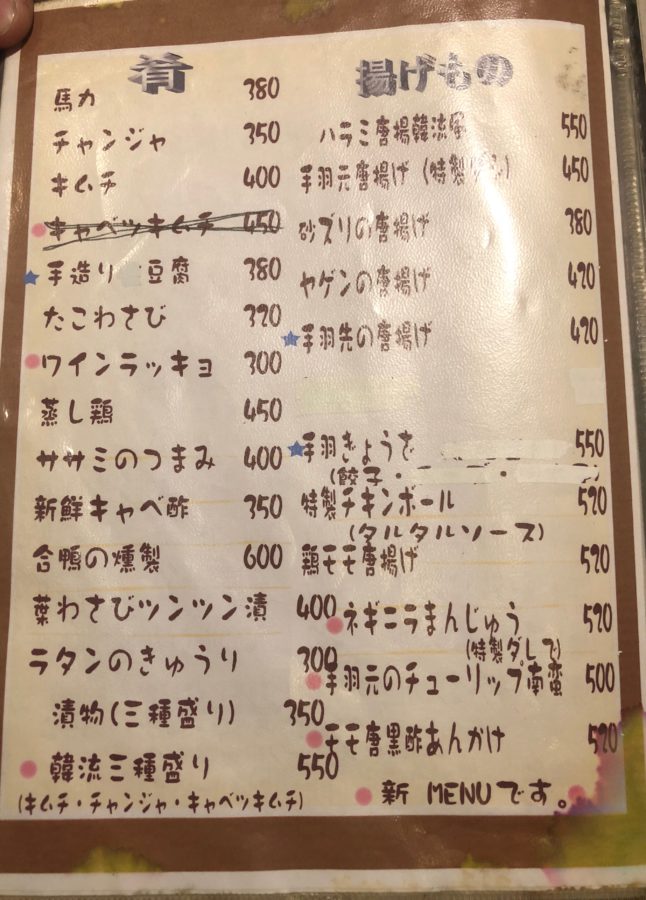 肴
馬力 380
チャンジャ 350
キムチ 400
キャベツキムチ 450
手造り 豆腐 380
たこわさび 320
ワインラッキョ 300
蒸し鶏 450
ササミのつまみ 400
新鮮キャベ酢 350
合鴨の燻製 600
葉わさびツンツン漬 400
ラタンのきゅうり 300
漬物(三種盛り) 350
韓流三種盛り 550
(キムチ・チャンジャ・キャベツキムチ)
揚げもの
ハラミ唐揚韓流風 550
手羽元唐揚げ (特製 450
砂ズリの唐揚げ 380
ヤゲンの唐揚げ 420
手羽先の唐揚げ 420
手羽きょうだ 550
(餃子・
特製チキンボール 520
(タルタルソース)
鶏モモ唐揚げ 520
ネギニラまんじゅう 520
(特製ダレで)
手羽元のチューリップ南蛮 500
モモ唐黒酢あんかけ 520
新 MENUです。